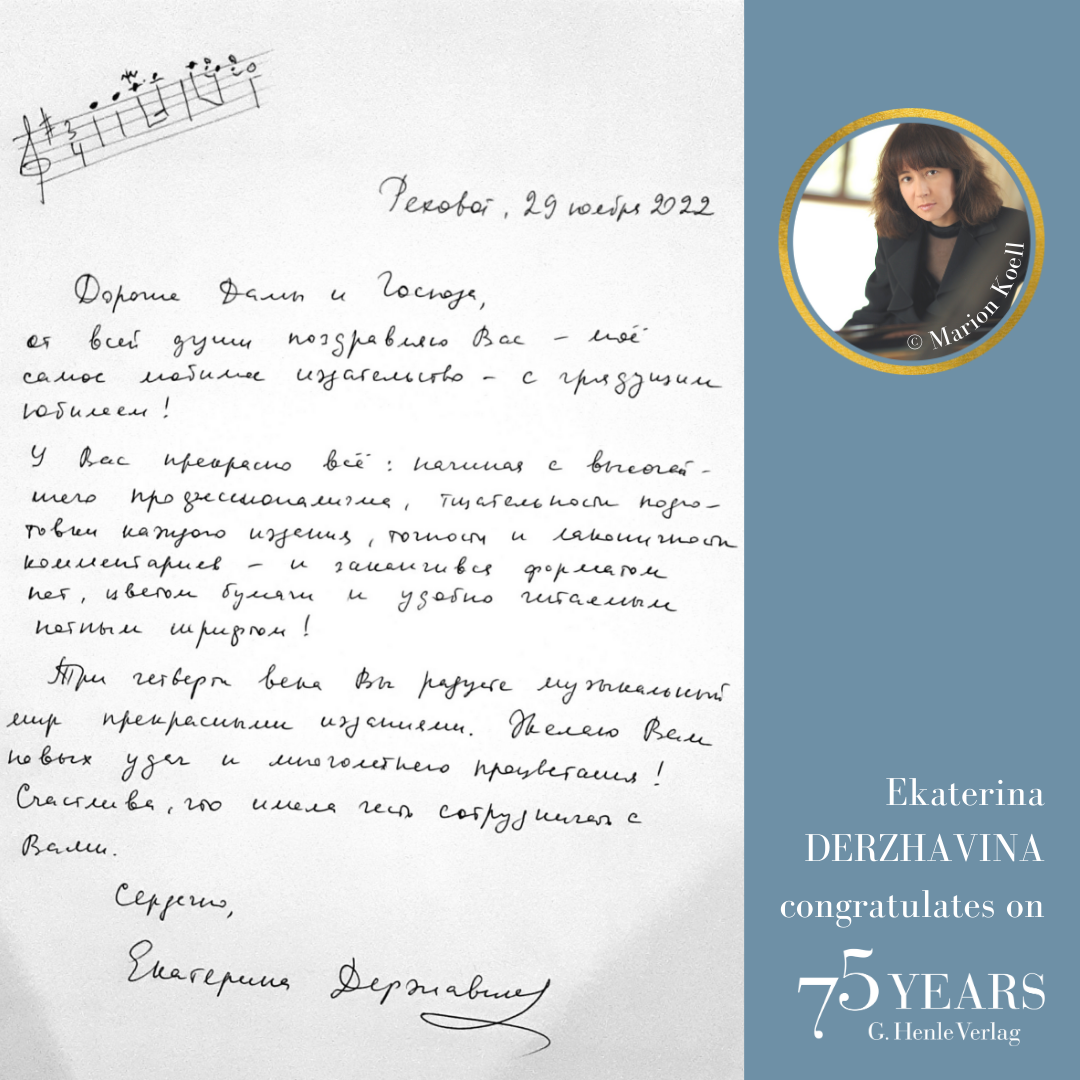 Реховот, 29 ноября 2022
Дорогие Дамы и Господа,
от всей души поздравляю Вас – моё
самое любимое издательство – с грядущим
юбилеем!
У Вас прекрасно всё: начиная с высочай-
шего профессионализма, тщательности подго-
товки каждого издания, точности и лаконичности
комментариев – и заканчивая форматом
нот, цветом бумаги и удобно читаемым
нотным шрифтом!
Три четверти века Вы радуете музыкальный
мир прекрасными изданиями. Желаю Вам
новых удач и многолетнего процветания!
Счастлива, что имела честь сотрудничать с
Вами.
Сердечно,
Екатерина Державина
© Marion Koell
Ekaterina
DERZHAVINA
congratulates on
75 YEARS
G. Henle Verlag